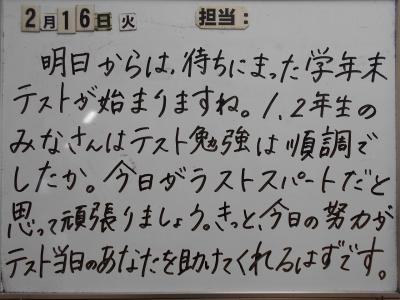 2月16日火 担当:
明日からは、待ちにまった学年末
テストが始まりますね。1、2年生の
みなさんはテスト勉強は順調で
したか。今日がラストスパートだと
思って頑張りましょう。きっと、今日の努力が
テスト当日のあなたを助けてくれるはずです。